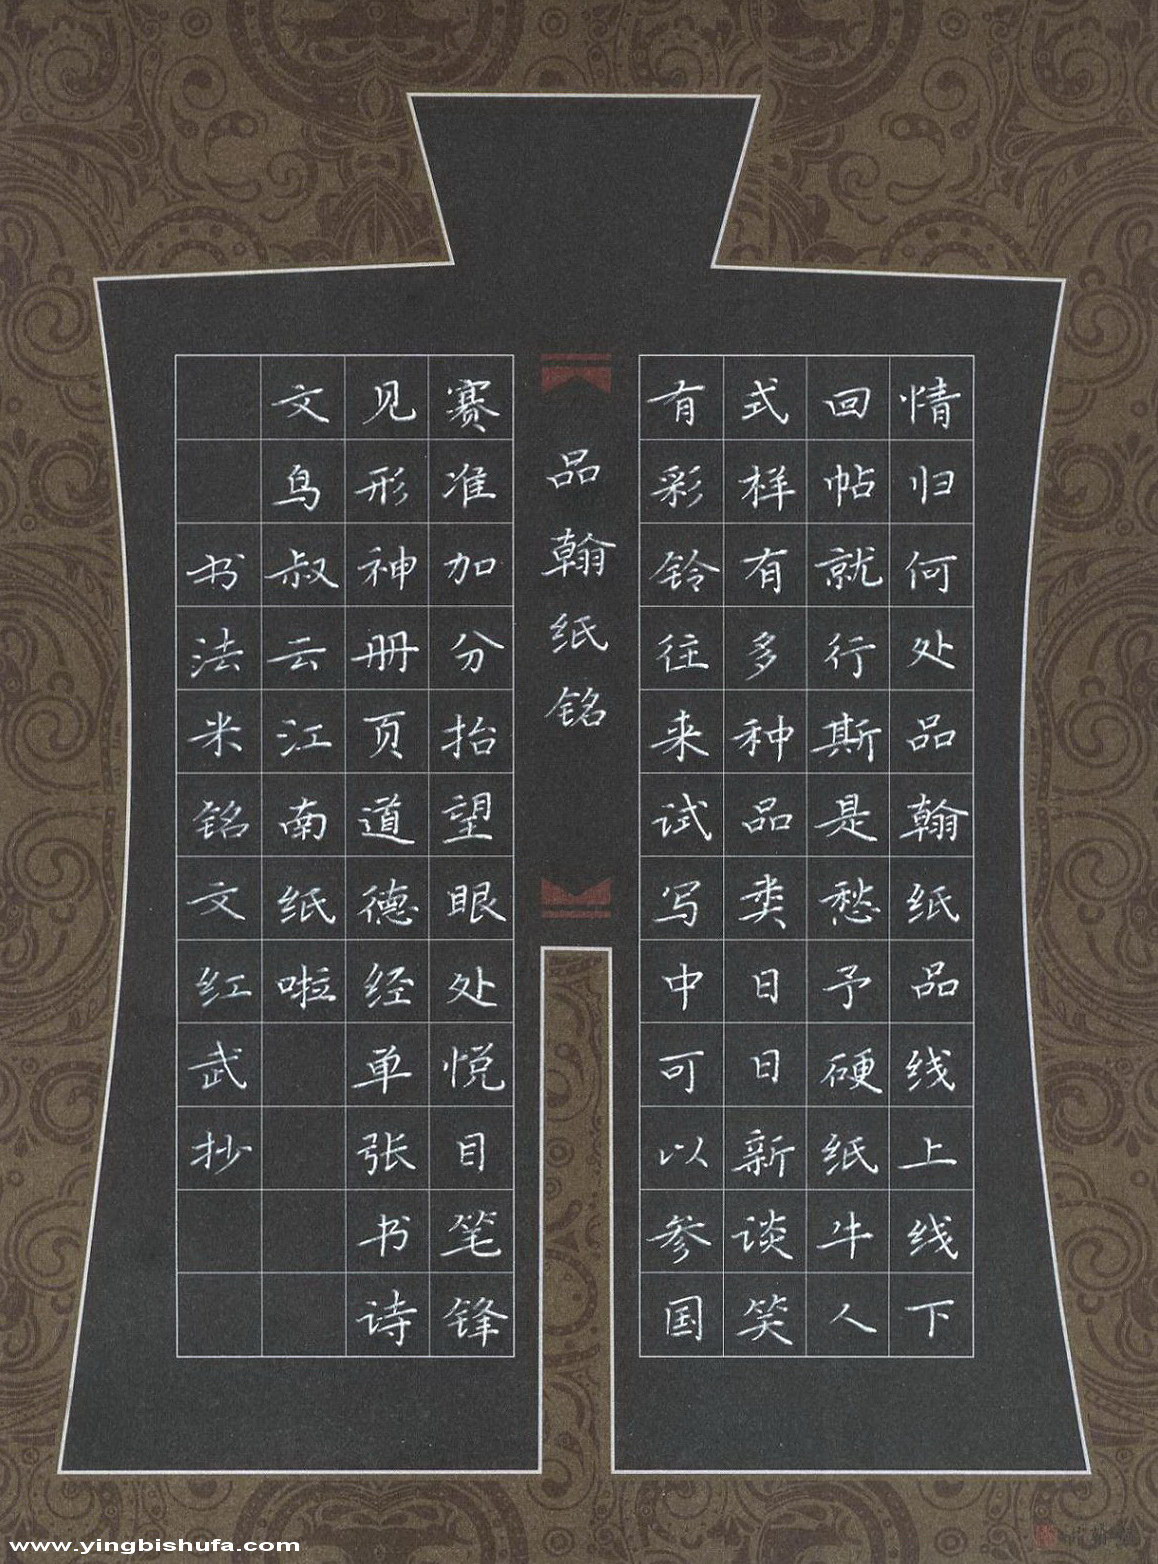 情归何处品翰纸品线上线下
回帖就行斯是愁予硬纸牛人
式样有多种品类日日新谈笑
有彩铃往来试写中可以参国
品翰纸铭
赛准加分抬望眼处悦目笔锋
见形神册页道德经单张书诗
文鸟叔云江南纸啦
书法米铭文红武抄
www.yingbishufa.com